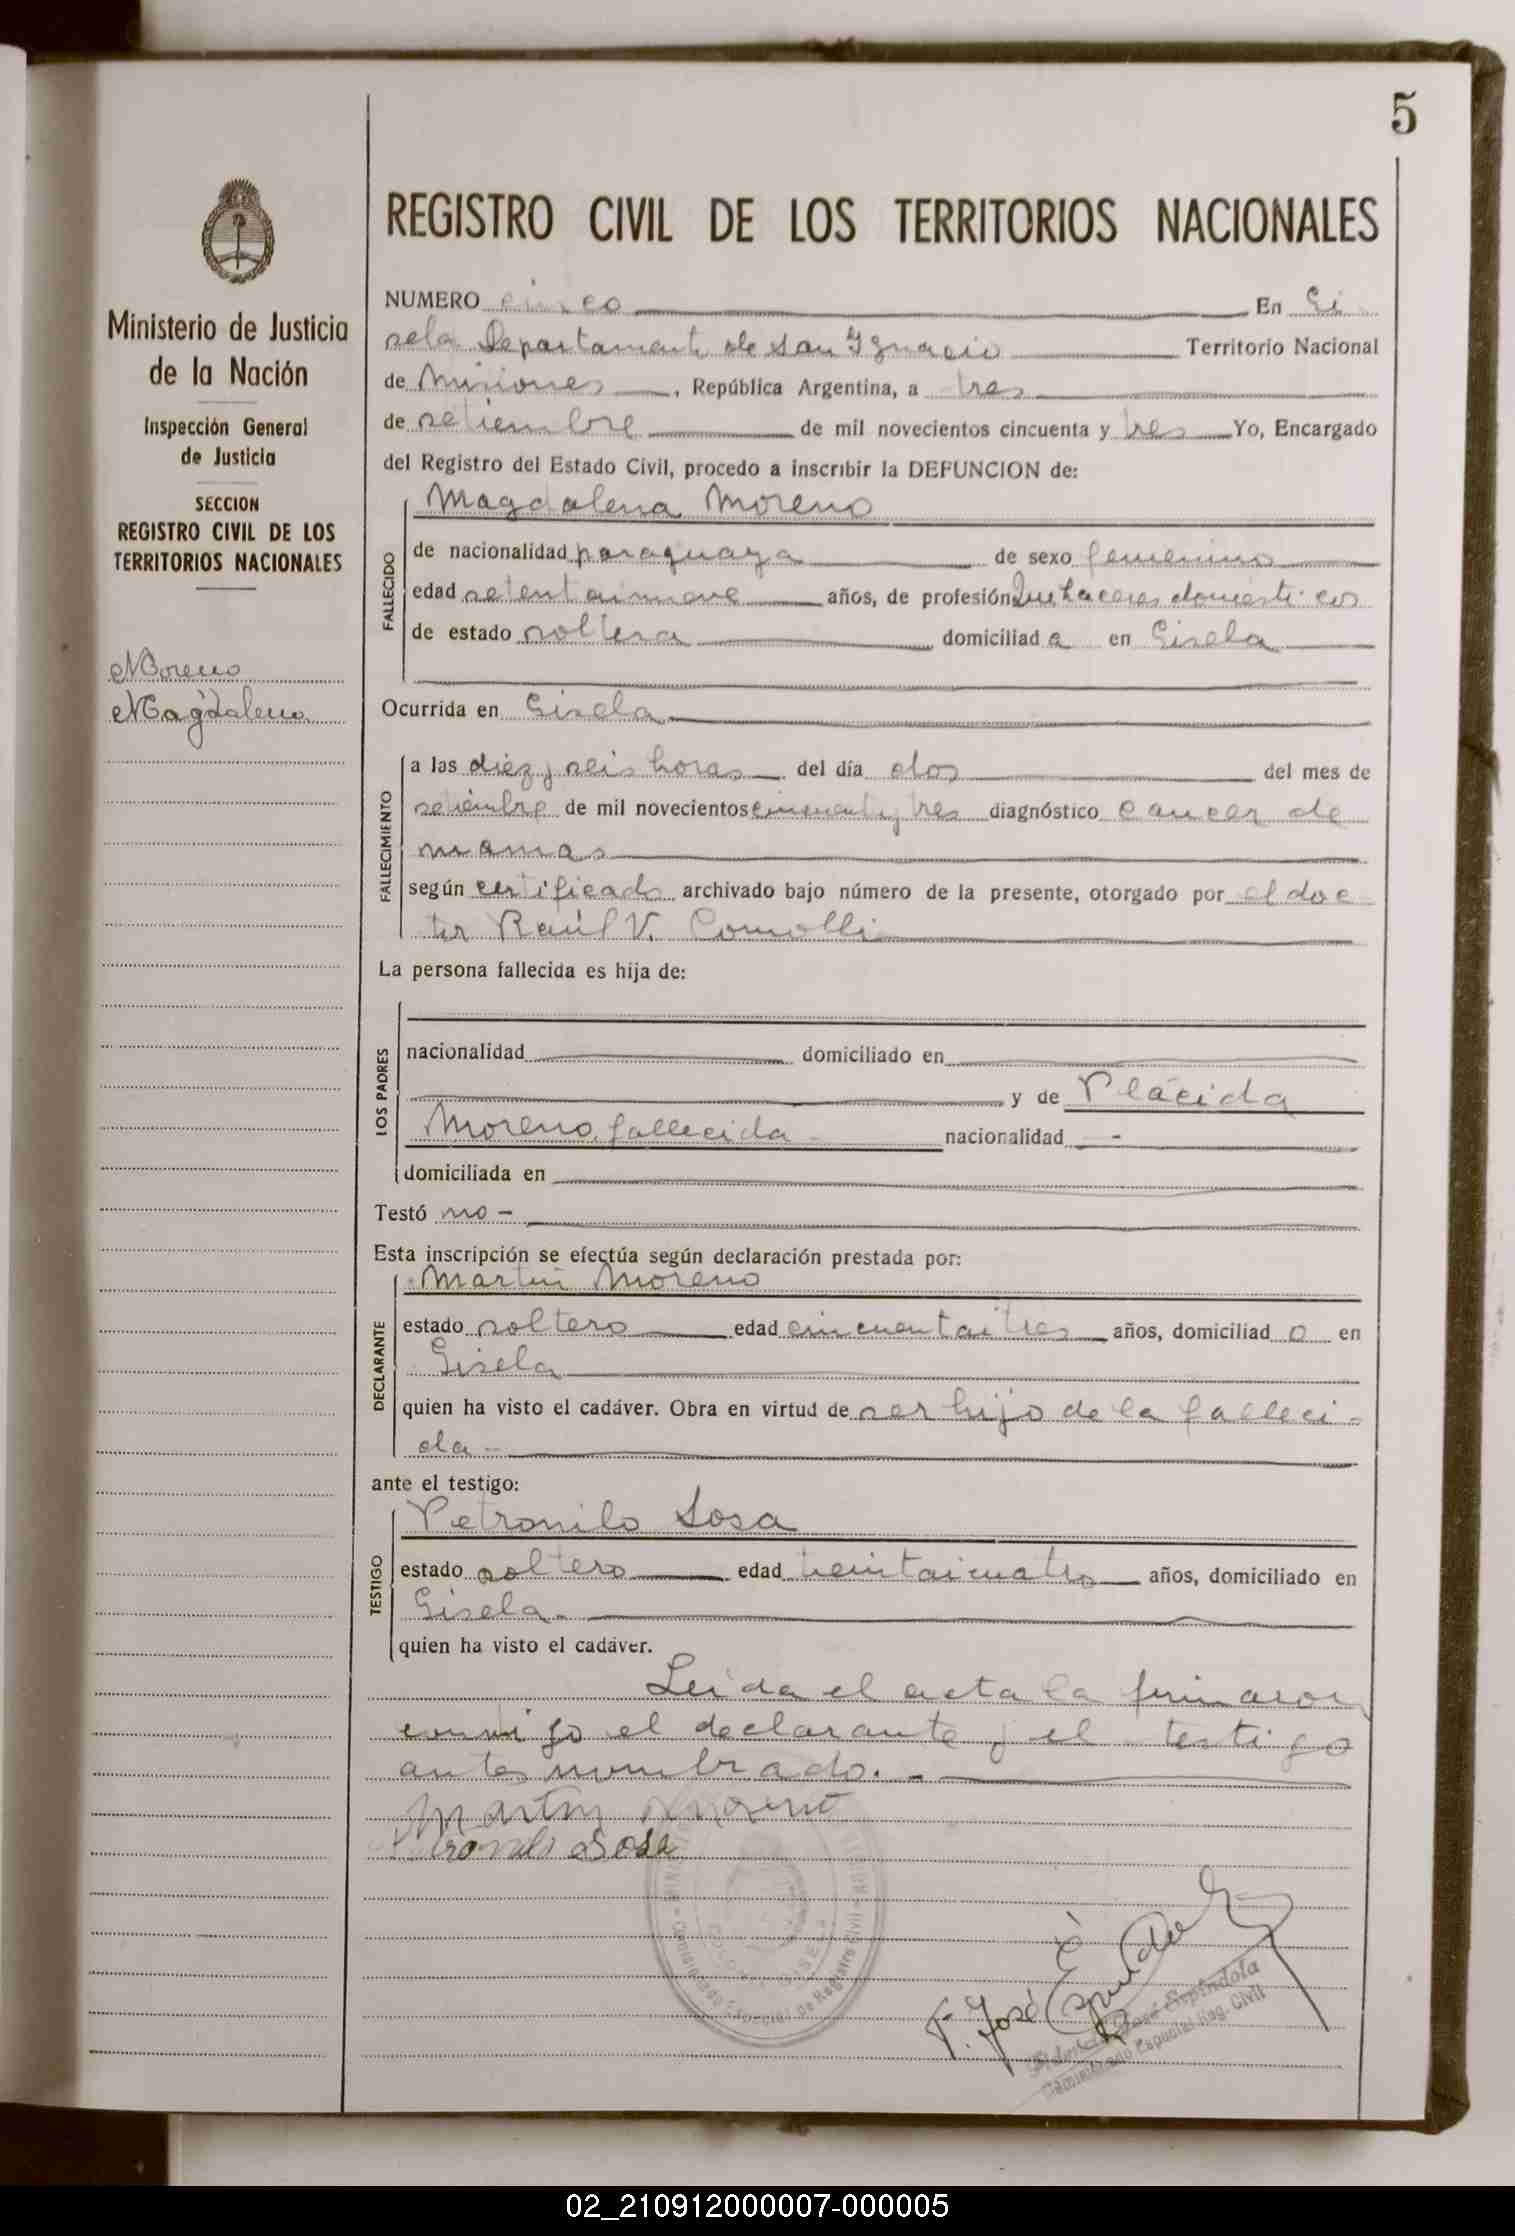 5
REGISTRO CIVIL DE LOS TERRITORIOS NACIONALES
Ministerio de Justicia
de la Nación
Inspección General
de Justicia
SECCION
REGISTRO CIVIL DE LOS
TERRITORIOS NACIONALES
Moreno
Magdalena
NUMERO cinco En Gi
sela Departamento de San Ygnacio Territorio Nacional
de Misiones, República Argentina, a tres
de setiembre de mil novecientos cincuenta y tres Yo, Encargado
del Registro del Estado Civil, procedo a inscribir la DEFUNCION de:
FALLECIDO
Magdalena Moreno
de nacionalidad paraguaya de sexo femenino
edad setentainueve años, de profesión Quehaceres domesticos
de estado soltera domiciliada en Gisela
Ocurrida en Gisela
FALLECIMIENTO
a las diez y seis horas del día dos del mes de
setiembre de mil novecientos cincuenta y tres diagnóstico cancer de
mamas
según certificado archivado bajo número de la presente, otorgado por el doc
tor Raúl V. Comolli
La persona fallecida es hija de:
LOS PADRES
nacionalidad domiciliado en
y de Plácida
Moreno, fallecida - nacionalidad -
domiciliada en
Testó no -
Esta inscripción se efectúa según declaración prestada por:
DECLARANTE
Martin Moreno
estado soltero edad cincuentaitres años, domiciliado en
Gisela
quien ha visto el cadáver. Obra en virtud de ser hijo de la falleci-
da -
ante el testigo:
TESTIGO
Petronilo Sosa
estado soltero edad treintaicuatro años, domiciliado en
Gisela.
quien ha visto el cadáver.
Leida el acta la firmaron
conmigo el declarante y el testigo
antes nombrado. -
Martin Moreno
Petronilo Sosa
F. José Espíndola
José Espíndola
Comisionado Especial Reg. Civil
Comisionado Especial de Registro Civil
02_210912000007-000005